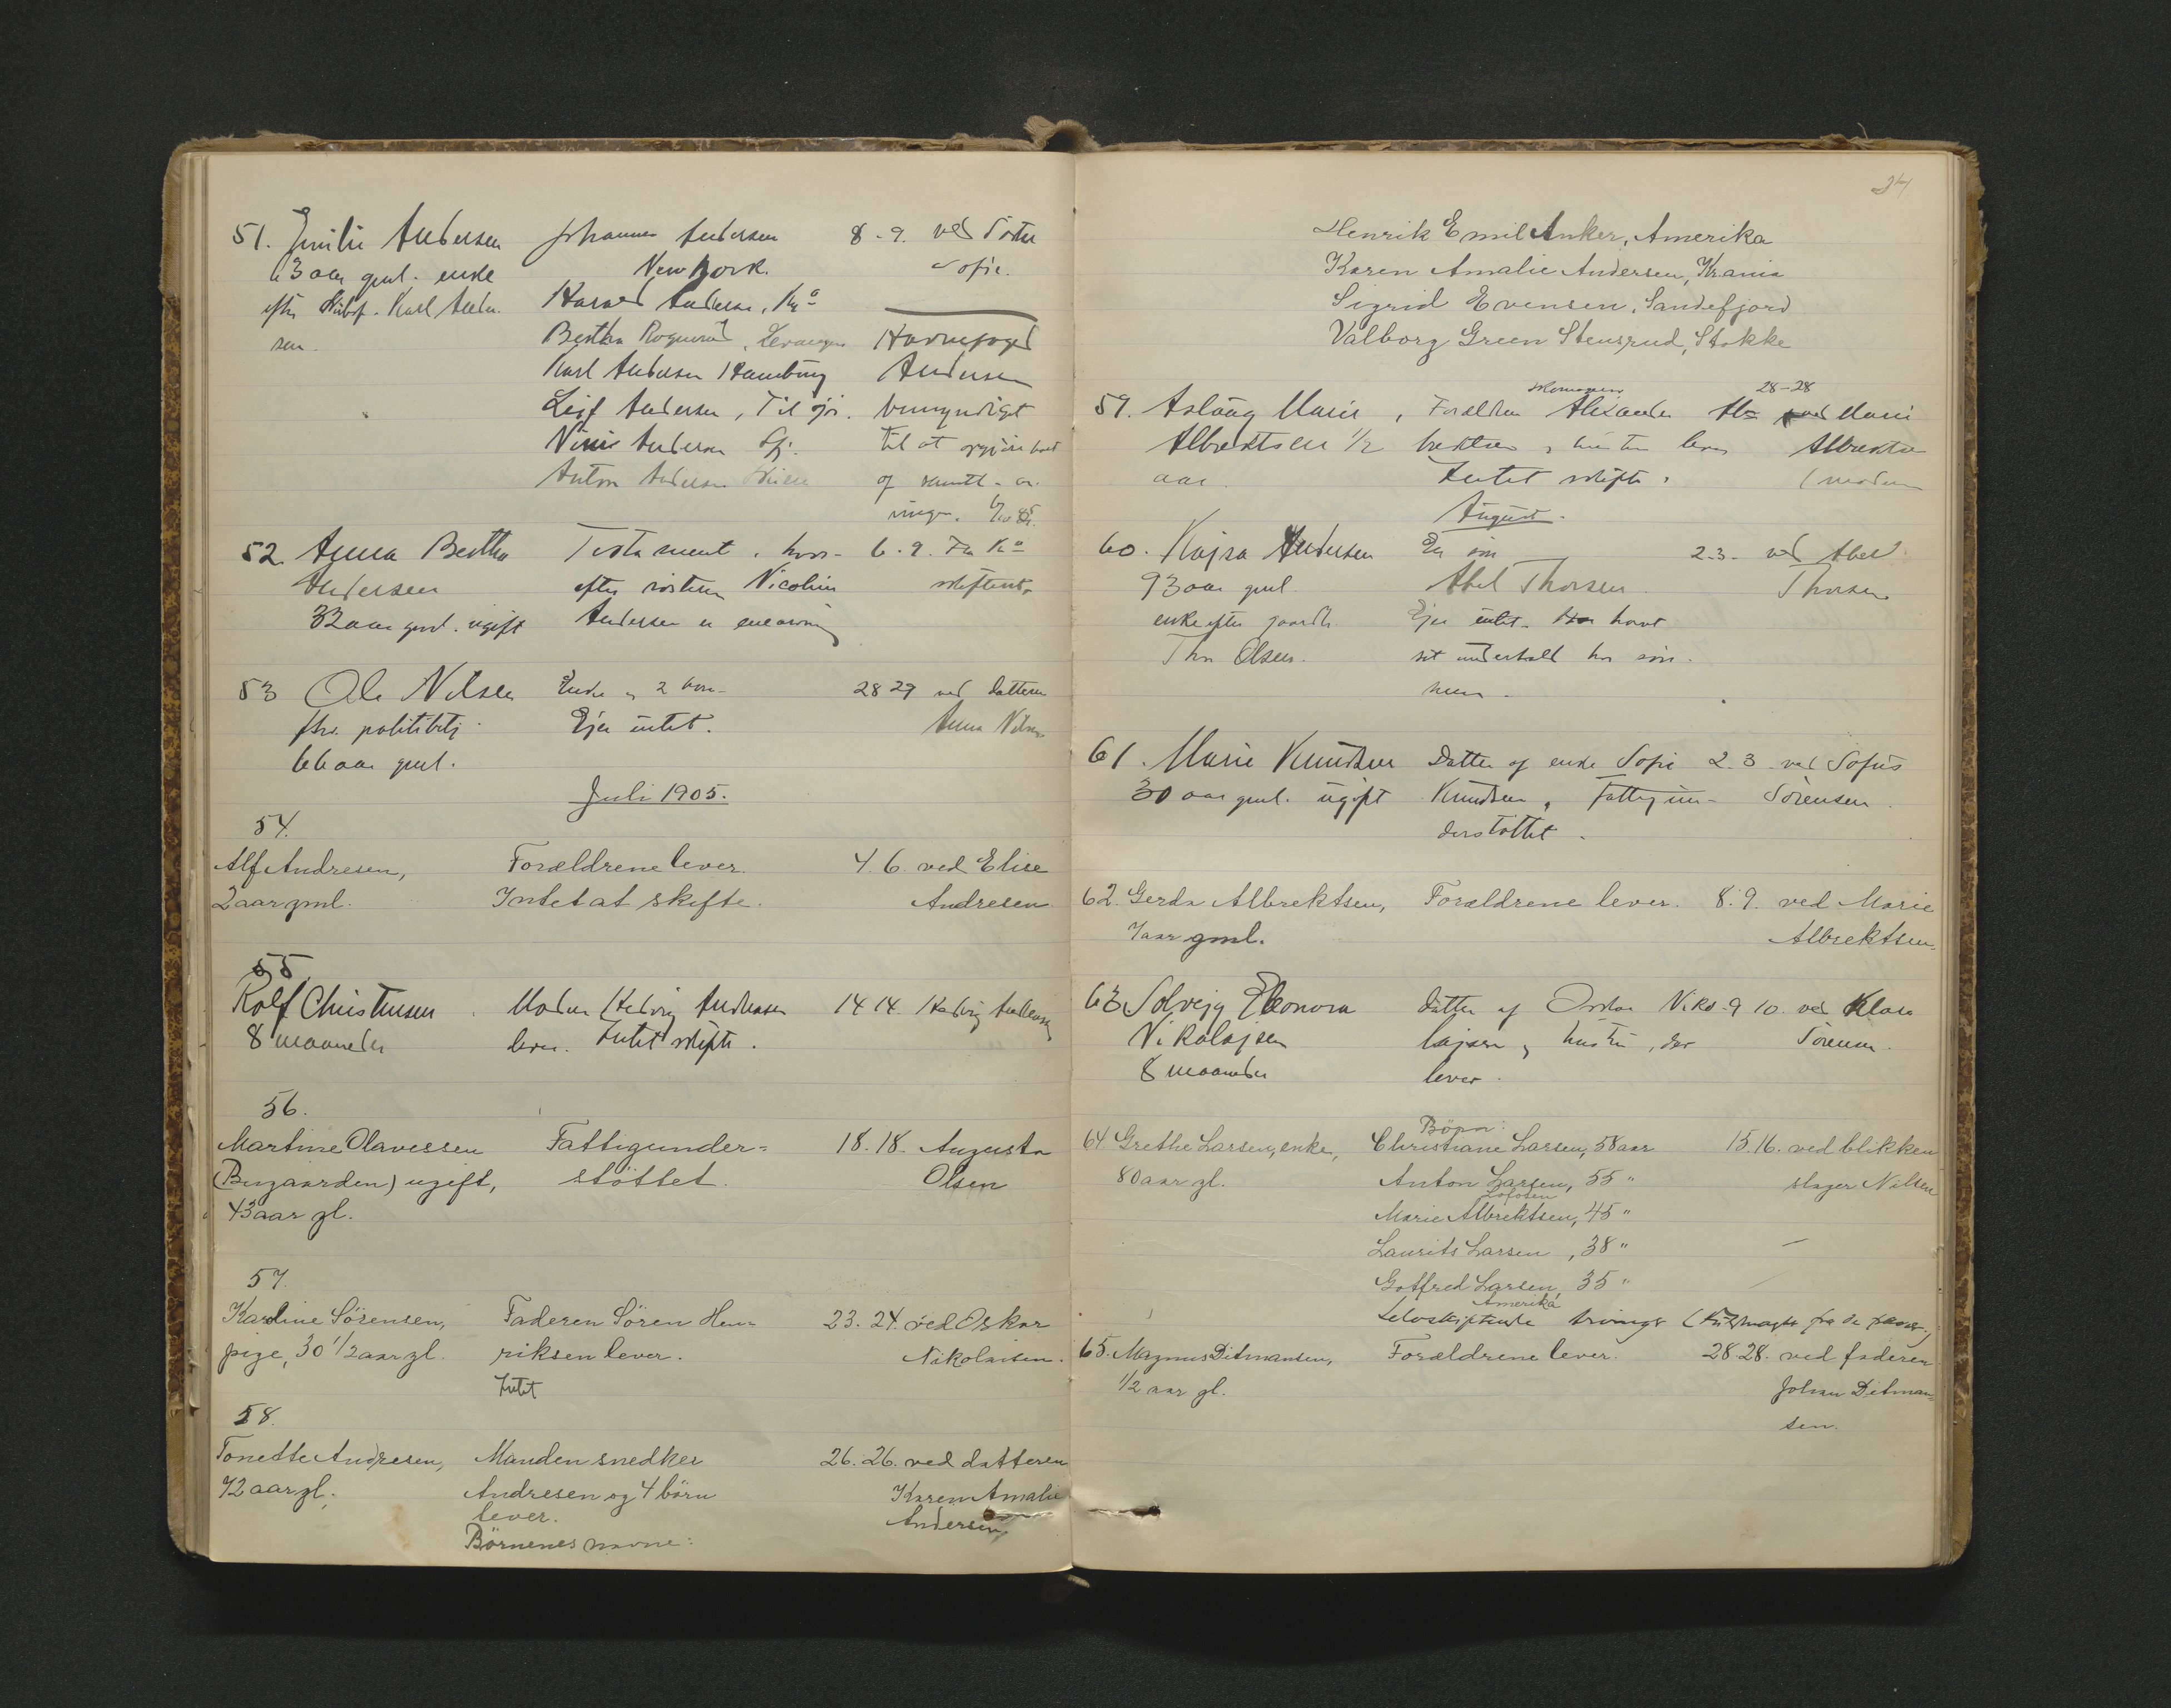 51. Emilie Andersen Johannes Andersen 8-9. ved Søster
63 aar gml. enke New York. Sofie.
efter Karl Ander-
sen. Harald Andersen, Kra
Bertha , Levanger Havnefoged
Karl Andersen Hamburg Andersen
Leif Andersen, Til sjøs. bemyndiget
Andersen Sfj. til at opgjøre boet
Anton Andersen Skien og samtl. ar-
vinger.
52. Anna Bertha Testament, hvor- 6.9. Fra Kra
Andersen efter søsteren Nicoline skifteret.
32 aar gml. ugift Andersen er enearving
53 Ole Nilsen Enke og 2 børn 28 29 ved datteren
fhv. politibetj. Ejer intet. Anna Nilsen
66 aar gml.
Juli 1905.
54.
Alf Andresen, Forældrene lever. 4. 6. ved Elise
2 aar gml. Intet at skifte. Andresen
55
Rolf Christensen Moder Hedvig Andreasen 14 14. Hedvig Andreasen
8 maaneder lever. Intet skifte.
56.
Martine Olavessen Fattigunder= 18. 18. Augusta
(Bugaarden) ugift, støttet. Olsen
43 aar gl.
57.
Karoline Sörensen, Faderen Sören Hen= 23. 24. ved Oskar
pige, 30 1/2 aar gl. riksen lever. Nikolaisen.
Intet
58.
Tonette Andresen, Manden snedker 26. 26. ved datteren
72 aar gl. Andresen og 4 börn Karen Amalie
lever. Andersen
Börnenes navne:
24
Henrik Emil Anker, Amerika
Karen Amalie Andersen, Kr.ania
Sigrid Evensen, Sandefjord
Valborg Green Stensrud, Stokke
28-28
59. Aslaug Marie , Forældre Alexander Al= ved Marie
Albrektsen 1/2 brektsen og hustru lever Albrektsen
aar. Intet skifte. (moderen
August.
60. Kajsa Andersen En søn 2-3- ved Abel
93 aar gml. Abel Thorsen. Thorsen
enke efter gaardbr. Ejer intet. Har havt
Thor Olsen. sit underhold hos søn-
nen.
61. Marie Knudsen Datter af enke Sofie 2. 3. ved Sofus
30 aar gml. ugift Knudsen, Fattigun- Sörensen.
derstøttet.
62. Gerda Albrektsen, Forældrene lever. 8. 9. ved Marie
7 aar gml. Albrektsen.
63 Solvejg Eleonora Datter af Oskar Niko- 9 10. ved Klara
Nikolajsen lajsen og hustru, der Sørensen.
8 maaneder lever.
Börn:
64 Grethe Larsen, enke, Christiane Larsen, 58 aar 15. 16. ved blikken
80 aar gl. Anton Larsen, 55 " slager Nilsen
Lofoten
Marie Albrektsen, 45 "
Laurits Larsen , 38 " —
Gotfred Larsen, 35 " —
Amerika
Selvskiftende arvinger (Fuldmagt fra de
65. Magnus Ditmansen, Forældrene lever. 28. 28. ved faderen
1/2 aar gl. Johan Ditman=
sen.